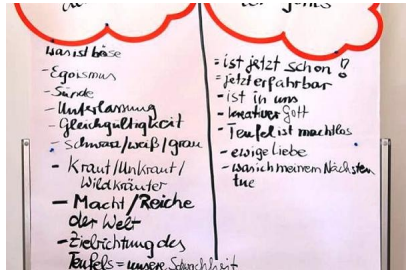 was ist böse
- Egoismus
- Sünde
- Unterlassung
- Gleichgültigkeit
- schwarz/weiß/grau
- Kraut/Unkraut/
Wildkräuter
- Macht/Reiche
der Welt
- Zielrichtung des
Teufels = unsere Schwachheit
- ist jetzt schon !?
- jetzt erfahrbar
- ist in uns
- kreativer Gott
- Teufel ist machtlos
- ewige Liebe
- was ich meinem Nächsten
tue